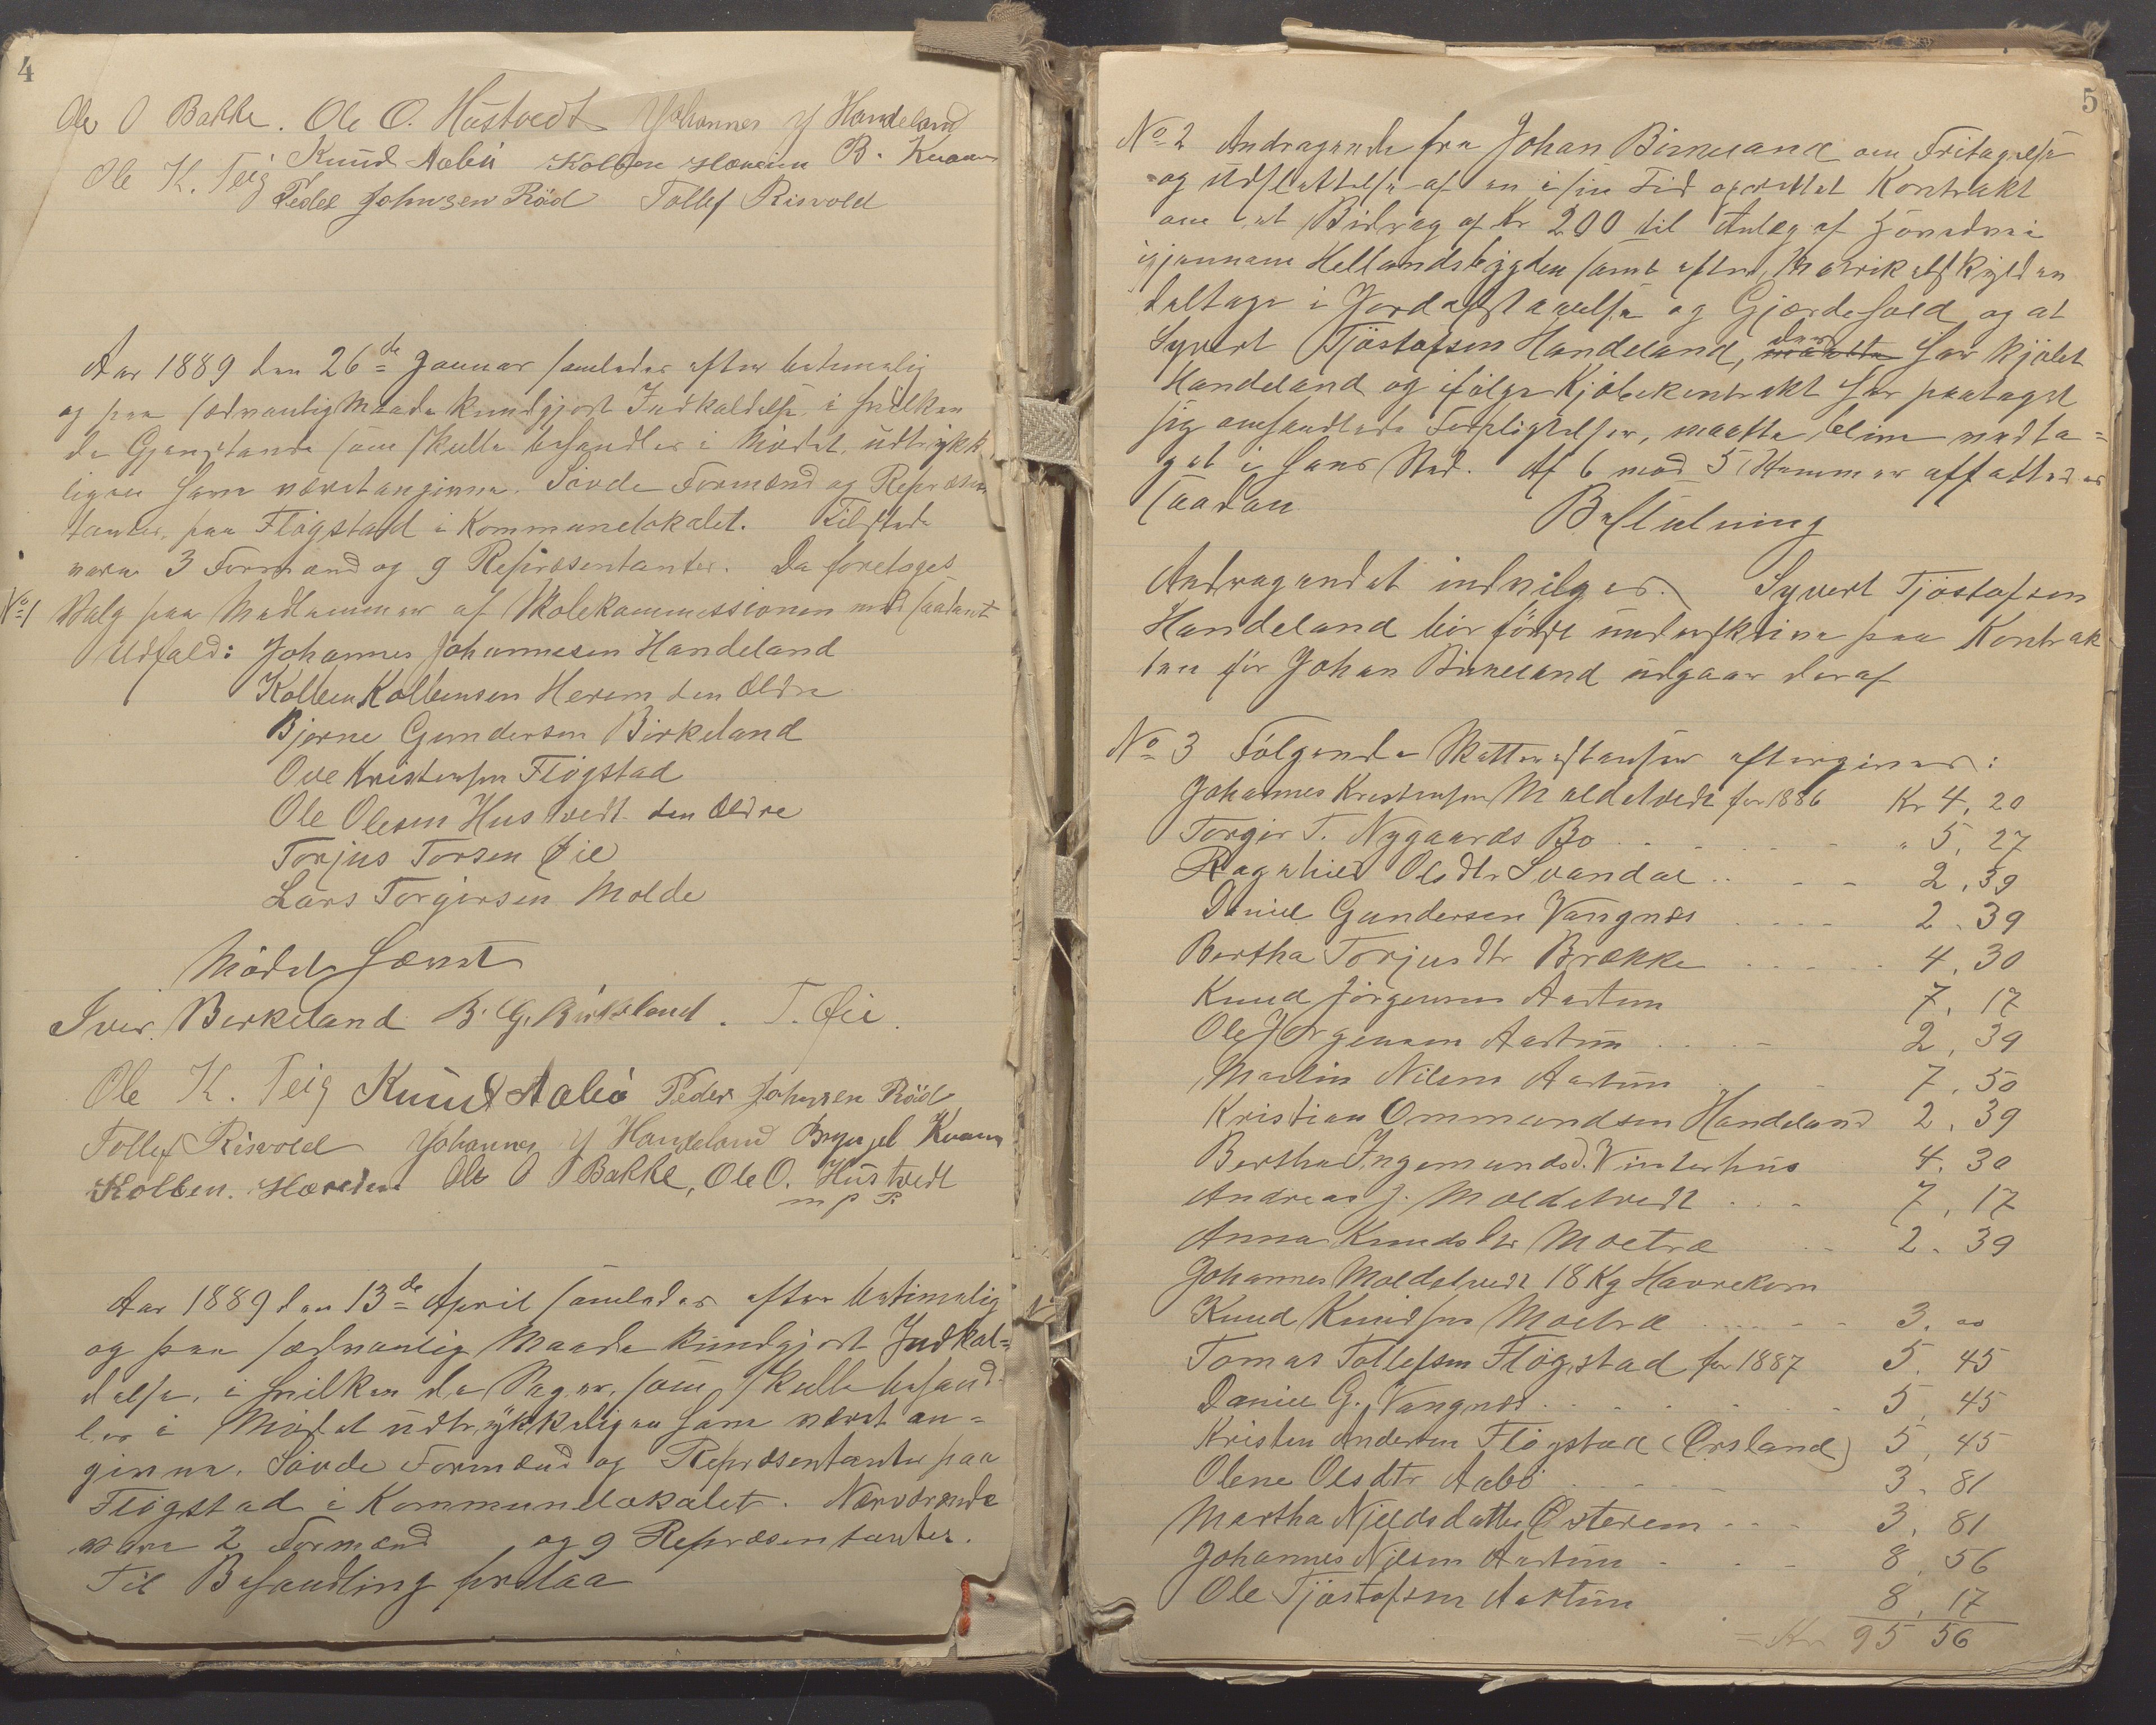 4
Ole O Bakke. Ole O. Hustvedt Johannes J Handeland
Ole K. Teig Knud Aabø Kolben Hæreim B. Kvam
Peder Johnsen Röd Tollef Risvold
Aar 1889 den 26de Januar samledes efter betimelig
og paa sædvanlig Maade kundgjort Indkaldelse, i hvilken
de Gjenstande som skulle behandles i Mødet, udtrykke
ligen have været angivne. Søvde Formænd og Repræsen
tanter, paa Fløgstad i Kommunelokalet. Tilstede
vare 3 Formænd og 9 Repræsentanter. Da foretoges
No 1 Valg paa Medlemmer af Skolekommissionen med saadant
Udfald: Johannes Johannesen Handeland
Kolben Kolbensen Hereim den ældre
Bjerne Gundersen Birkeland
Ove Kristensen Fløgstad
Ole Olesen Hustvedt den ældre
Torjus Torsen Øie
Lars Torgersen Molde
Mødet hævet
Iver Berkeland B. G. Birkeland. T. Øie.
Ole K. Teig Knud Aabø Peder Johnsen Röd
Tollef Risvold Johannes J Handeland Brynjel Kvam
Kolben. Hæreim Ole O Bakke, Ole O. Hustvedt
m p P.
Aar 1889 den 13de April samledes efter betimelig
og paa sædvanlig Maade kundgjort Indkal=
delse, i hvilken de Sager, som skulle behand
les i Mødet udtrykkeligen have været an=
givne. Søvde Formænd og Repræsentanter paa
Fløgstad i Kommunelokalet. Nærværende
vare 2 Formænd og 9 Repræsentanter.
Til Behandling forelaa
5
No 2 Andragende fra Johan Birkeland om Fritagelse
og Udslettelse af en i sin Tid oprettet Kontrakt
om et Bidrag af Kr 200 til Anlæg af Hovedvei
igjennem Hellandsbygden samt efter Matrikelskylden
deltage i Jordafstaaelse og Gjærdehold og at
Syvert Tjøstofsen Handeland, maatte der har kjøbt
Handeland og ifølge Kjøbekontrakt har paataget
sig omhandlede Forpligtelser, maatte blive vedta=
get i hans Sted. Af 6 mod 5 Stemmer affattedes
saadan
Beslutning
Andragendet indvilges. Syvert Tjøstofsen
Handeland bør først underskrive paa Kontrak
ten før Johan Birkeland udgaar deraf
No 3 Følgende Skatterestanser eftergives:
Johannes Kristensen Moldetvedt for 1886 Kr 4, 20
Torger T. Nygaards Bo " 5, 27
Ragnhild Olsdtr Svandal 2, 39
Daniel Gundersen Vangnæs 2, 39
Bertha Torjusdtr Brække 4, 30
Knud Jørgensen Aartun 7, 17
Ole Jørgensen Aartun 2, 39
Martin Nilsen Aartun 7, 50
Kristian Ommundsen Handeland 2, 39
Bertha Ingemundsd. Vinterhus 4, 30
Andreas J. Moldetvedt 7, 17
Anna Knudsdtr Moetræ 2, 39
Johannes Moldetvedt 18 Kg Havrekorn
Knud Knudsen Moetræ 3, 00
Tomas Tollefsen Fløgstad for 1887 5, 45
Daniel G. Vangnæs 5, 45
Kristen Andersen Fløgstad (Ørsland) 5, 45
Olene Olsdtr Aabø 3, 81
Martha Njeldsdatter Østerem 3, 81
Johannes Nilsen Aartun 8, 56
Ole Tjøstofsen Aartun 8, 17
= Kr 95 56